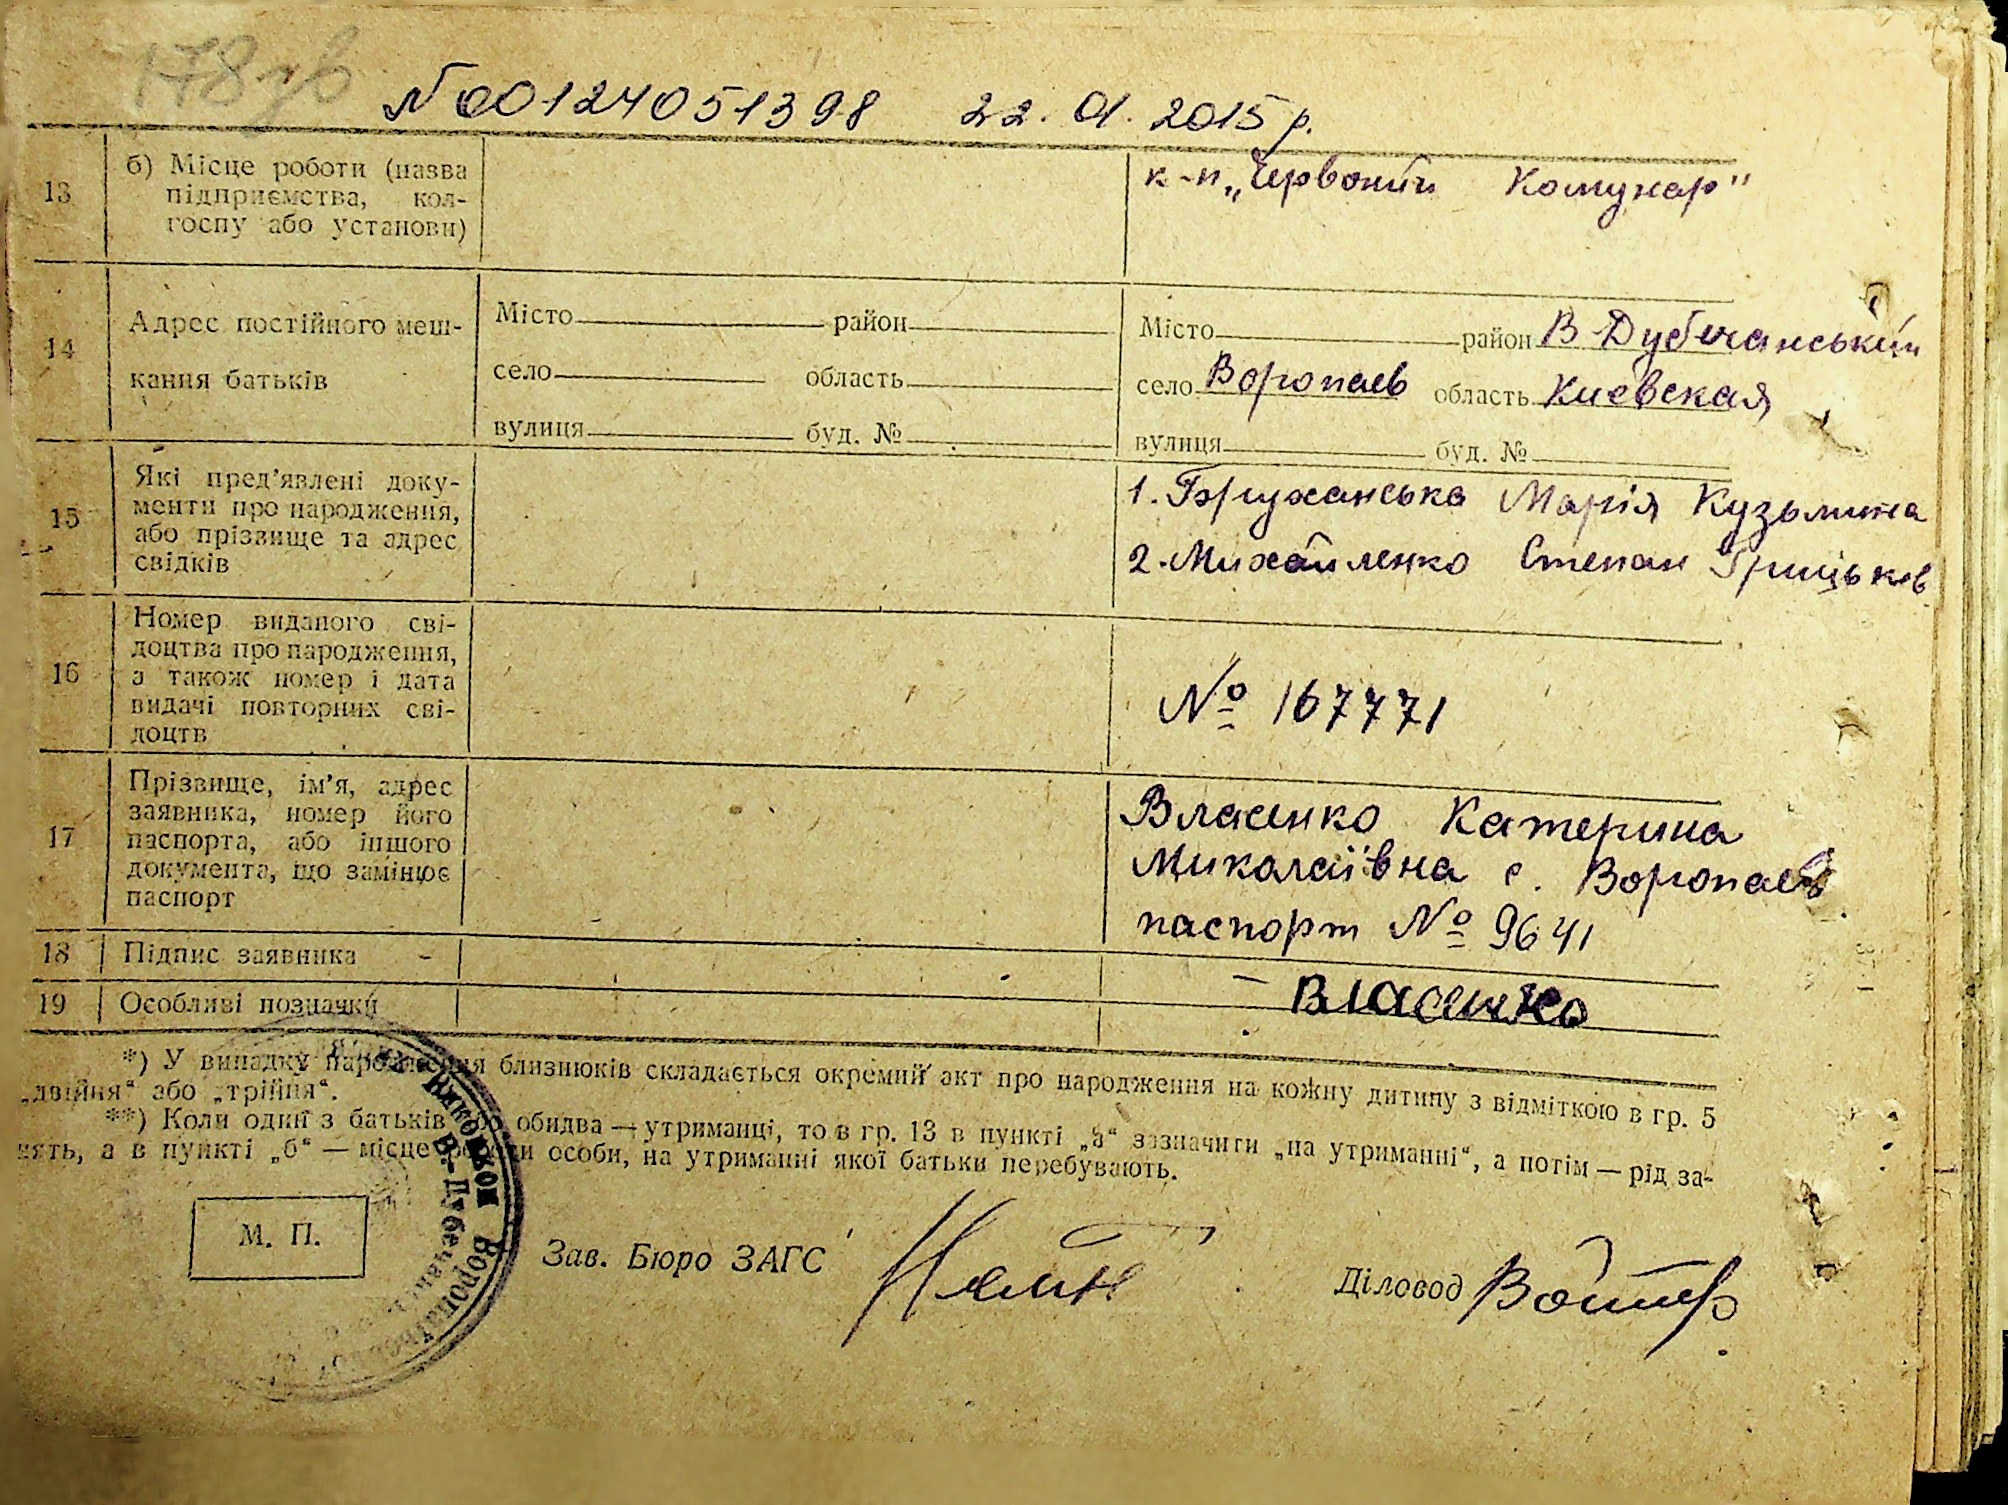 178 зв
№00124051398 22.01.2015 р.
13
б) Місце роботи (назва
підприємства, кол-
госпу або установи)
к-п „Червоний Комунар"
14
Адрес постійного меш-
кання батьків
Місто район
село область
вулиця буд. №
Місто район В-Дубечанський
село Воропаєв область Киевская
вулиця буд. №
15
Які пред'явлені доку-
менти про народження,
або прізвище та адрес
свідків
1. Марія Кузьмина
2. Михайленко Степан Грицьков
16
Номер виданого сві-
доцтва про народження,
а також номер і дата
видачі повторних сві-
доцтв
№ 167771
17
Прізвище, ім'я, адрес
заявника, номер його
паспорта, або іншого
документа, що замінює
паспорт
Власенко Катерина
Миколаївна с. Воропаєв
паспорт № 9641
18 Підпис заявника -
Власенко
19 Особливі позначки
*) У випадку народження близнюків складається окремий акт про народження на кожну дитину з відміткою в гр. 5
„двійня“ або „трійня“.
**) Коли один з батьків або обидва — утриманці, то в гр. 13 в пункті „а“ зазначити „на утриманні“, а потім — рід за-
нять, а в пункті „б“ — місце роботи особи, на утриманні якої батьки перебувають.
М. П.
Зав. Бюро ЗАГС
Діловод